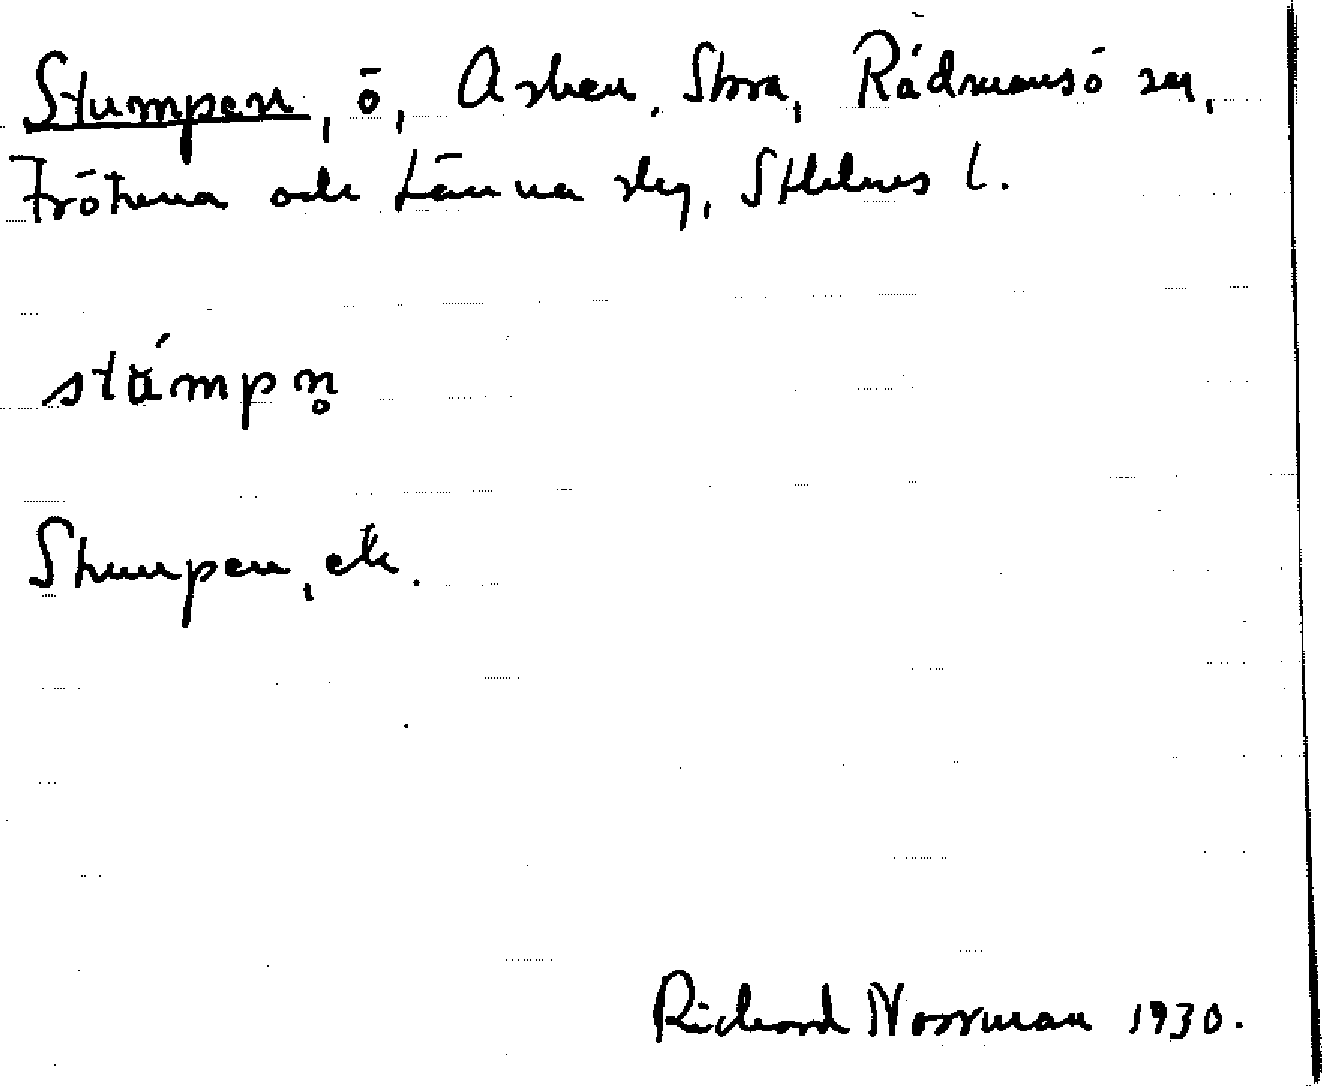 Stumpen, ö, Asken, Stora, Rådmansö sn,
Frötuna och Länna slg, Sthlms l.
stámpn̥
Stumpen, ek.
Richard Norrman 1930.